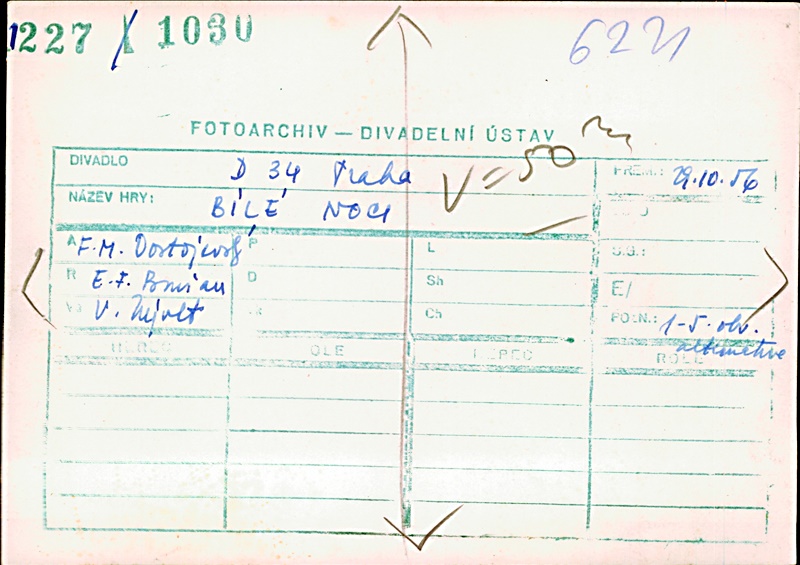 1227 1030
6221
FOTOARCHIV — DIVADELNÍ ÚSTAV
V = 50
DIVADLO D 34 Praha PREM.: 29.10.56
NÁZEV HRY: BÍLÉ NOCI
A F. M. Dostojevský P L S.G.:
R E. F. Burian D Sh E/
V. Nývlt Ch POZN.: 1-5. obr.
HEREC ROLE HEREC ROLE